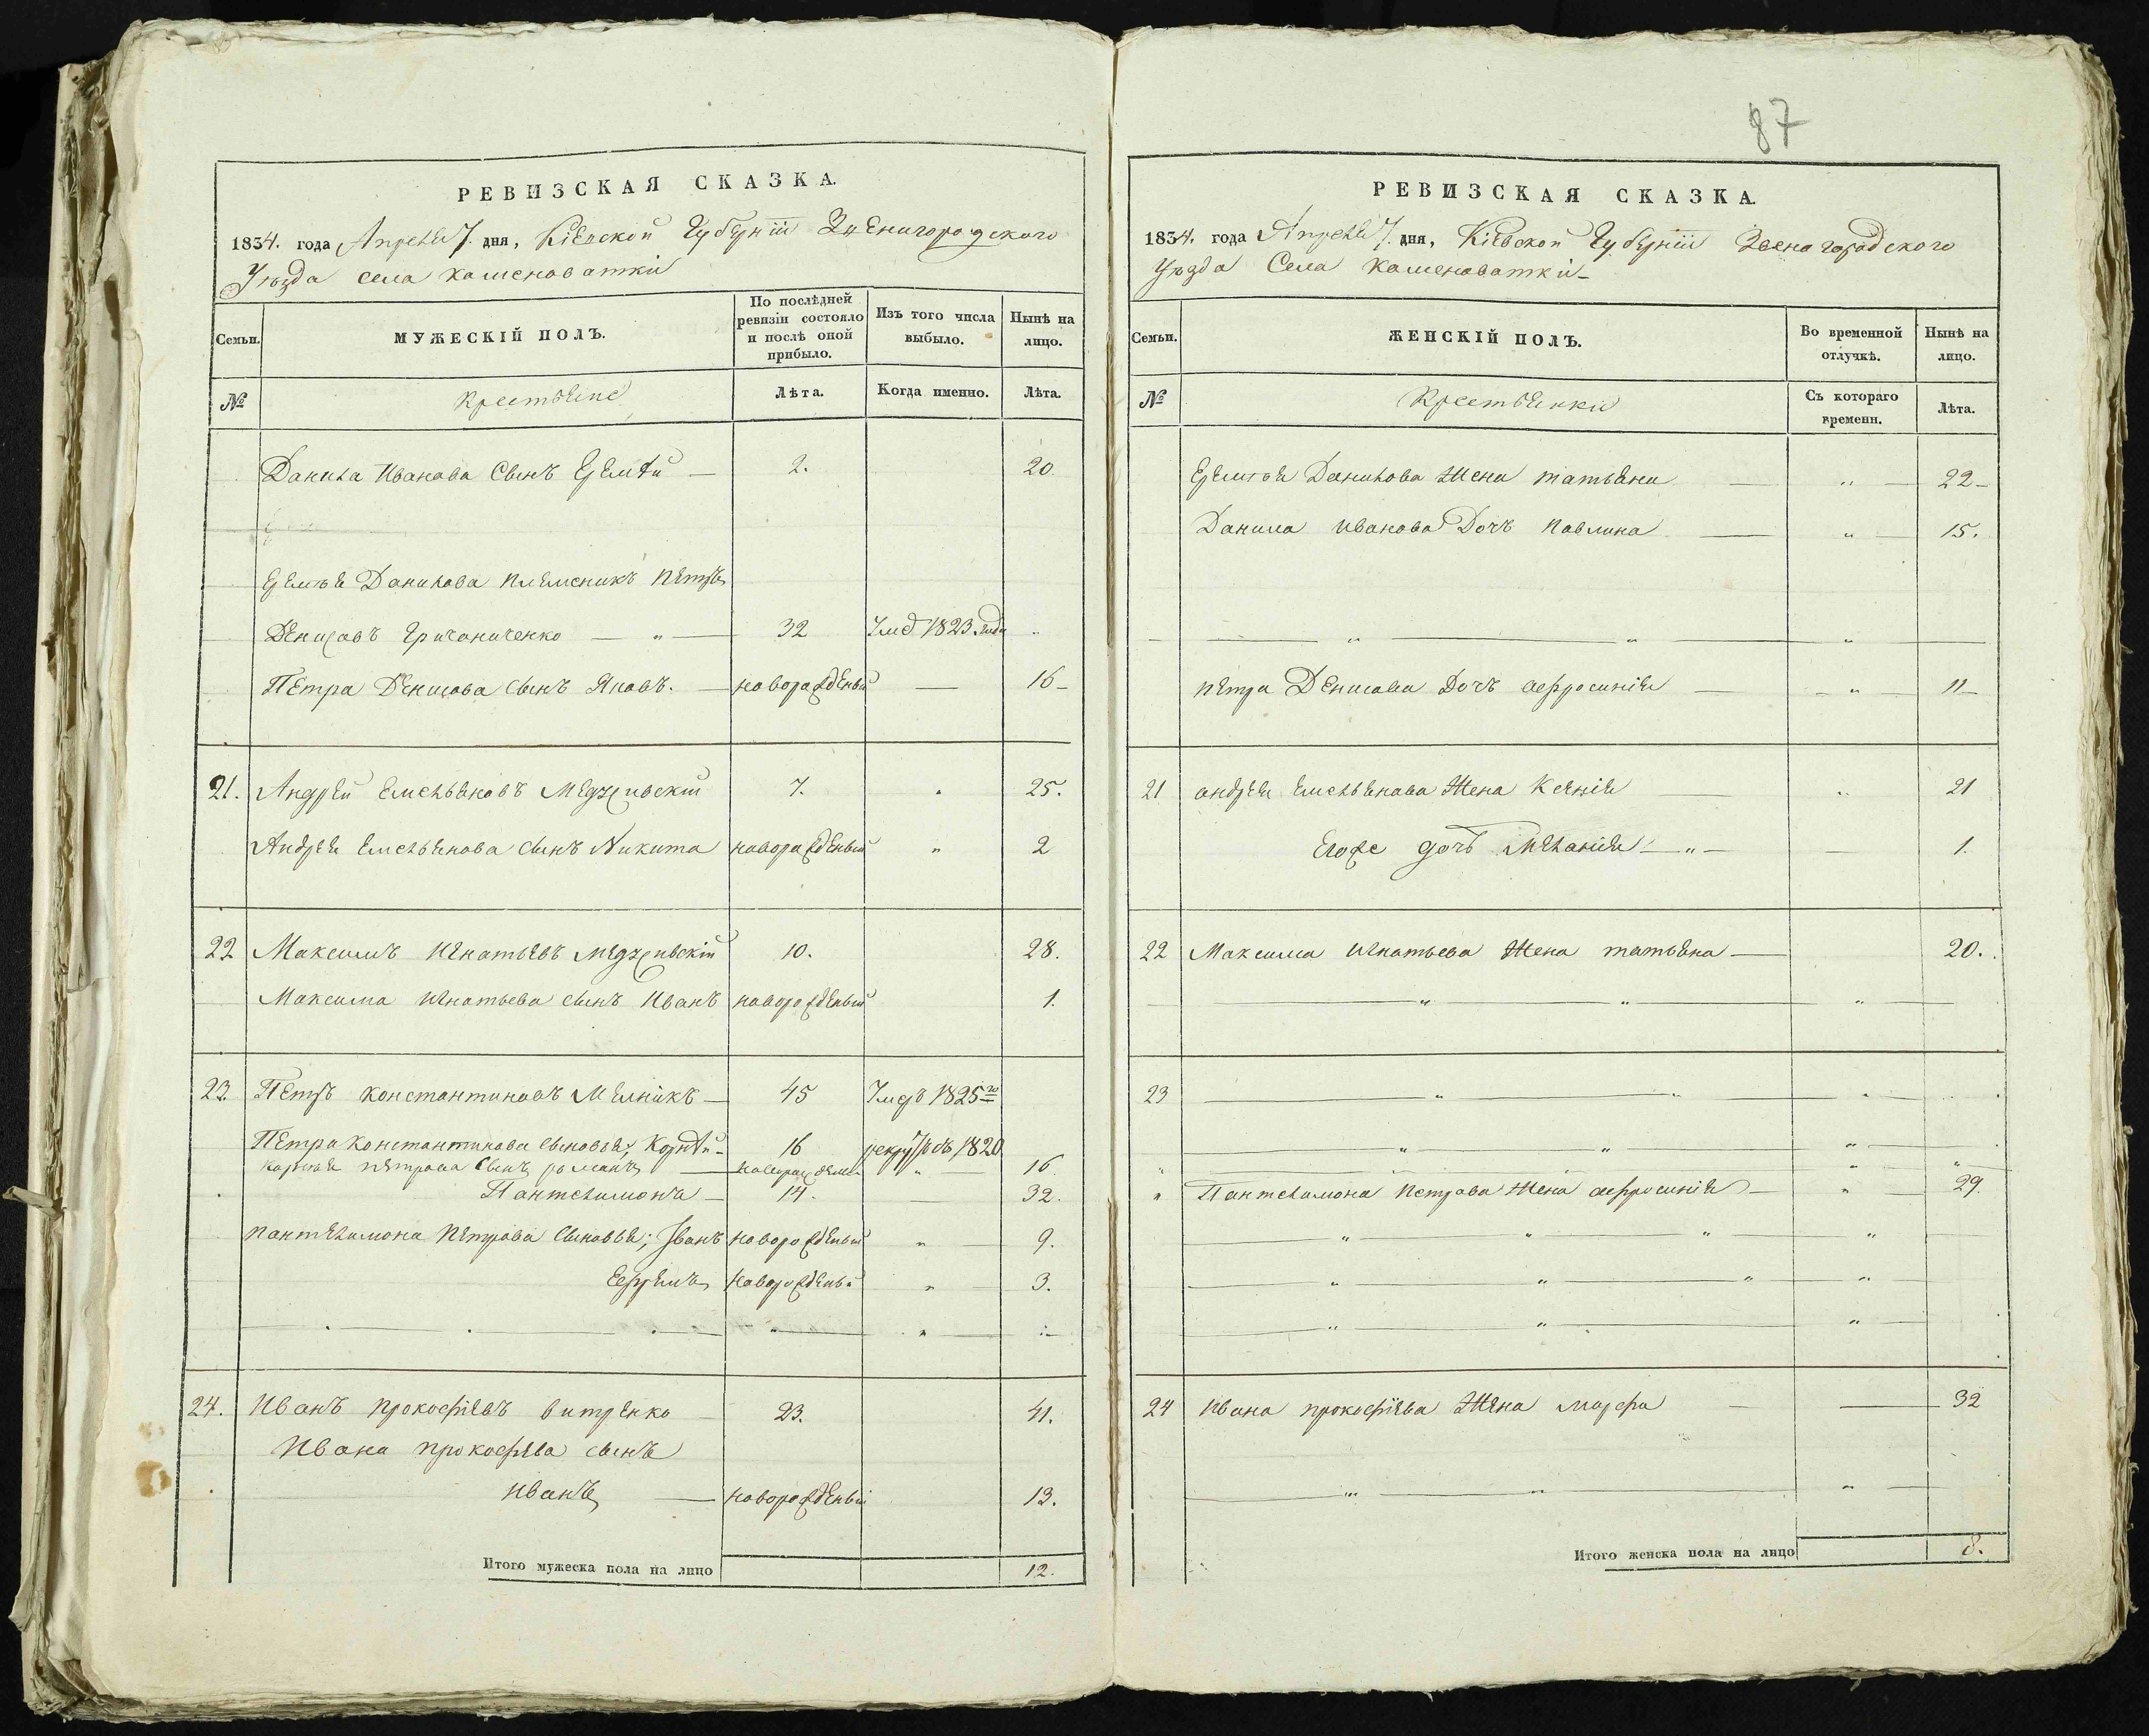 87
РЕВИЗСКАЯ СКАЗКА.
1834. года Апреля 7. дня, Кіевской Губерніи Звенигородского
Уѣзда села Каменоватки
Семьи. МУЖЕСКІЙ ПОЛЪ. По послѣдней ревизіи состояло и послѣ оной прибыло. Изъ того числа выбыло. Нынѣ на лицо.
№ Крестьяне Лѣта. Когда именно. Лѣта.
Данила Иванова Сынъ Еремѣй — 2. 20
Еремѣя Данилова племеникъ Петръ
Денисовъ — " — 32 Умѣ 1823 года "
Петра Денисова сынъ Яковъ. — новорожденый — 16 —
21. Андрей Емельяновъ 7. " 25.
Андрея Емельянова сынъ Никита новорожденый " 2
22 Максимъ Игнатьевъ 10. 28.
Максима Игнатьева сынъ Иванъ новорожденый 1.
23. Петръ Константиновъ Мелникъ — 45 Умеръ 1825го
Петра Константинова сыновья; Корнѣй — 16 1820
Корнея Петрова сынъ Романъ — " 16
Пантелимонъ — 14. — 32.
Пантелимона Петрова сыновья; Іванъ новорожденый " 9.
Ефремъ новорожденый " 3.
24. Иванъ Прокофіевъ Витренко 23. 41.
Ивана Прокофева сынъ
Иванъ — новорожденый 13.
Итого мужеска пола на лицо 12.
РЕВИЗСКАЯ СКАЗКА.
1834. года Апреля 7. дня, Кіевской Губерніи Звеногородского
Уѣзда Села Каменоватки —
Семьи. ЖЕНСКІЙ ПОЛЪ. Во временной отлучкѣ. Нынѣ на лицо.
№ Крестьянки Съ котораго времени. Лѣта.
Еремѣя Данилова Жена татьяна — " — 22 —
Данила Иванова Дочъ Павлина — " — 15.
Петра Денисова Дочъ Аефросинія — " — 11 —
21 Андрея Емельянова Жена Ксенія — " 21
Егоже дочъ Меланія — " — — 1.
22 Максима Игнатьева Жена татьяна — 20.
23
" Пантелимона Петрова Жена Аефросинія — " — 29.
24 Ивана Прокофіева Жена Марфа — — 32
Итого женска пола на лицо 8.